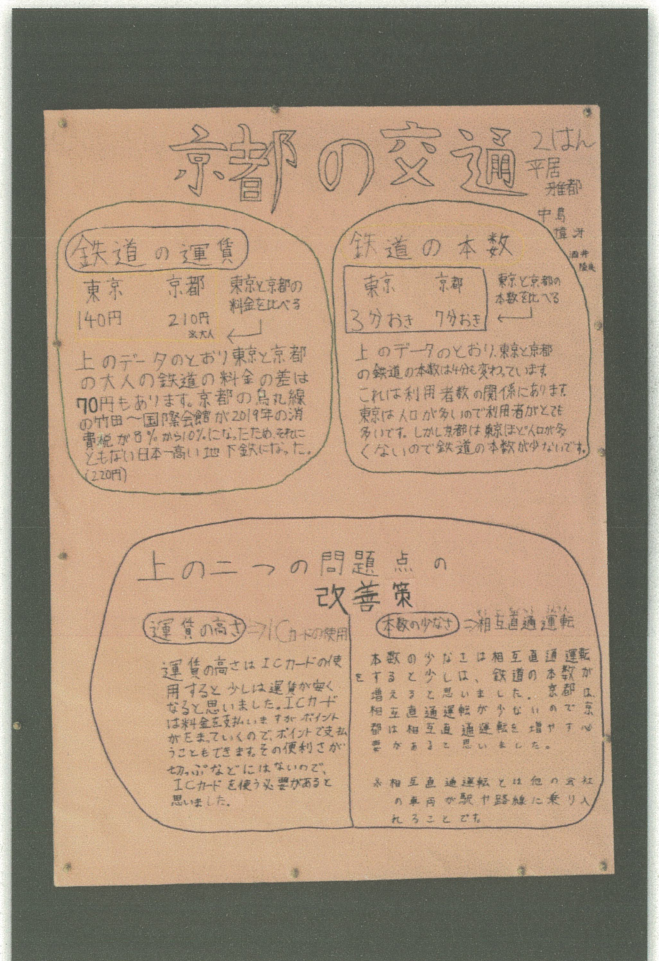 京都の交通
2はん
平居
雅都
中島
酒井
鉄道の運賃
東京 京都
140円 210円
※大人
東京と京都の
料金を比べる
上のデータのとおり東京と京都
の大人の鉄道の料金の差は
70円もあります。京都の烏丸線
の竹田～国際会館が2019年の消
費税が8%から10%になったため、それに
ともない日本一高い地下鉄になった。
(220円)
鉄道の本数
東京 京都
3分おき 7分おき
東京と京都の
本数を比べる
上のデータのとおり、東京と京都
の鉄道の本数は4分も変わっています
これは利用者数の関係にあります
東京は人口が多いので利用者がとても
多いです。しかし京都は東京ほど人口が多
くないので鉄道の本数が少ないです。
上の二つの問題点の
改善策
運賃の高さ⇒ICカードの使用
運賃の高さはICカードの使
用すると少しは運賃が安く
なると思いました。ICカード
は料金を支払いますがポイント
がたまっていくので、ポイントで支払
うこともできます。その便利さが
切っぷなどにはないので、
ICカードを使う必要があると
思いました。
本数の少なさ⇒相互直通運転
本数の少なさは相互直通運転
をすると少しは、鉄道の本数が
増えると思いました。京都は、
相互直通運転が少ないので京
都は相互直通運転を増やす必
要があると思いました。
※相互直通運転とは他の会社
の車両が駅や路線に乗り入
れることです。